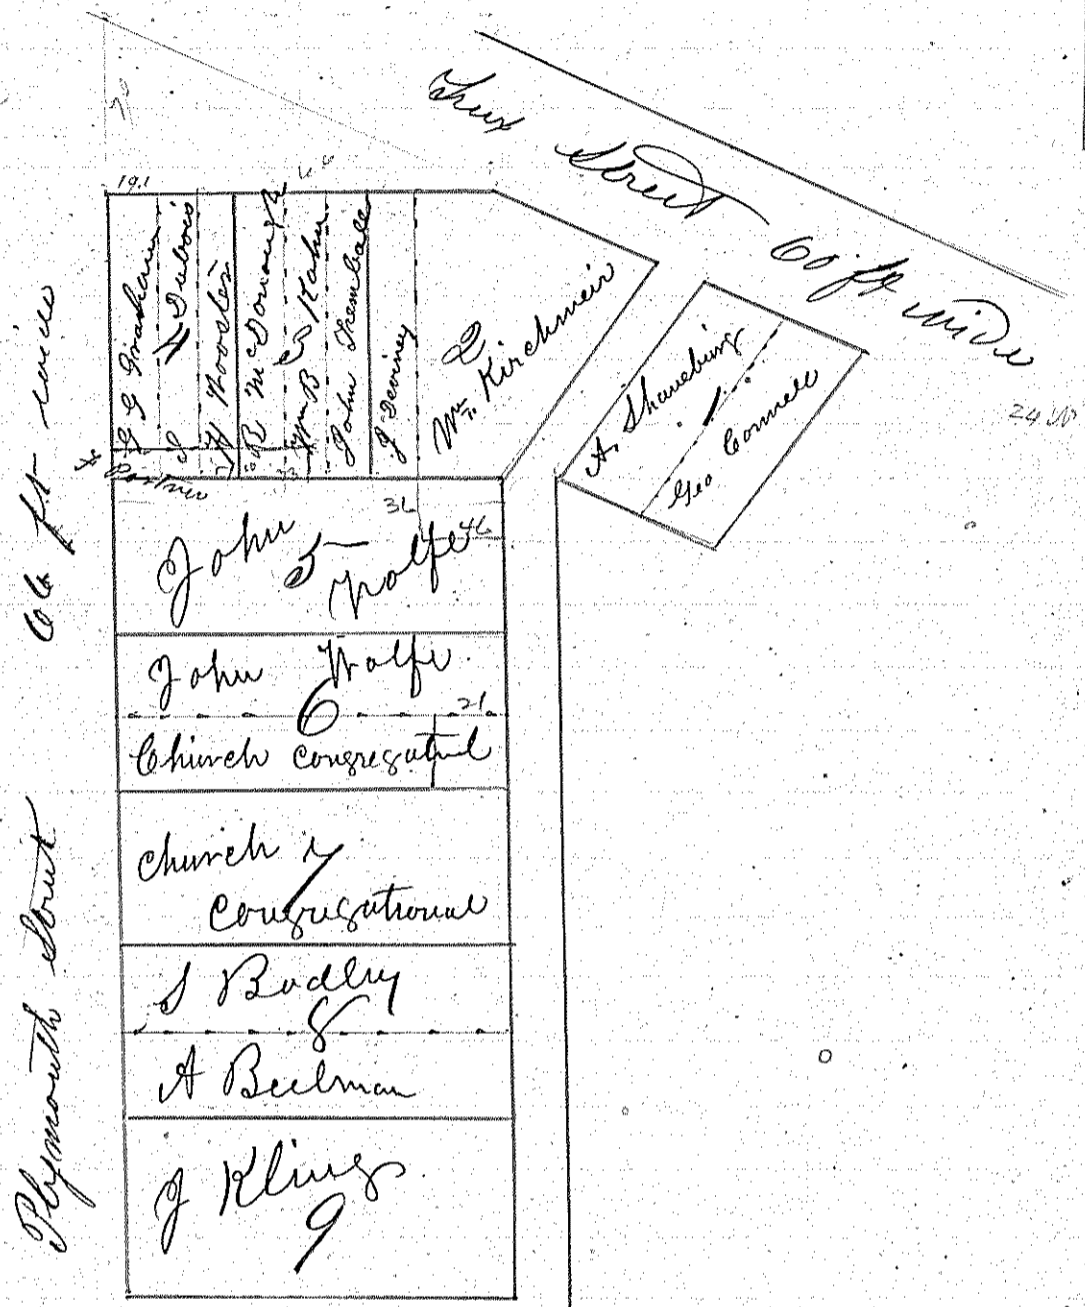 Street 60 ft wide
70
19.1
G G Graham
S Dubois
H Wooster
R McDonough
Wm B Kahn
John Trembale
J Deviney
2
Wm Kirchmeir
A. Shaneburg
1
Geo Connell
24
66 ft wide
Plymouth Street
36
46
John Wolfe
5
John Wolfe
6
21
Church Congregatnl
Church
7
Congregational
S Bodley
8
A Beelman
J Kling
9